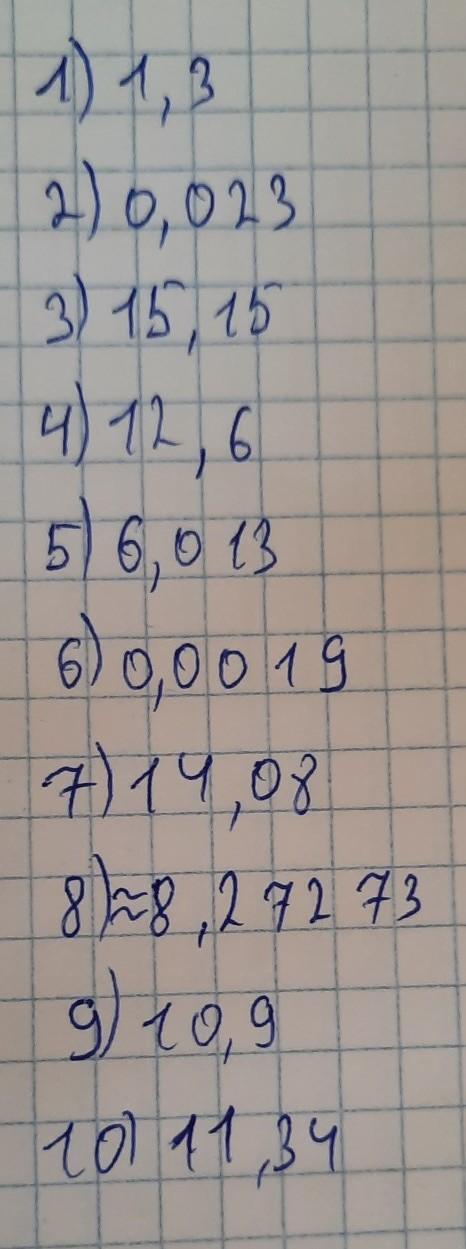 1) 1,3
2) 0,023
3) 15,15
4) 12,6
5) 6,013
6) 0,0019
7) 14,08
8) ≈8,27273
9) 10,9
10) 11,34